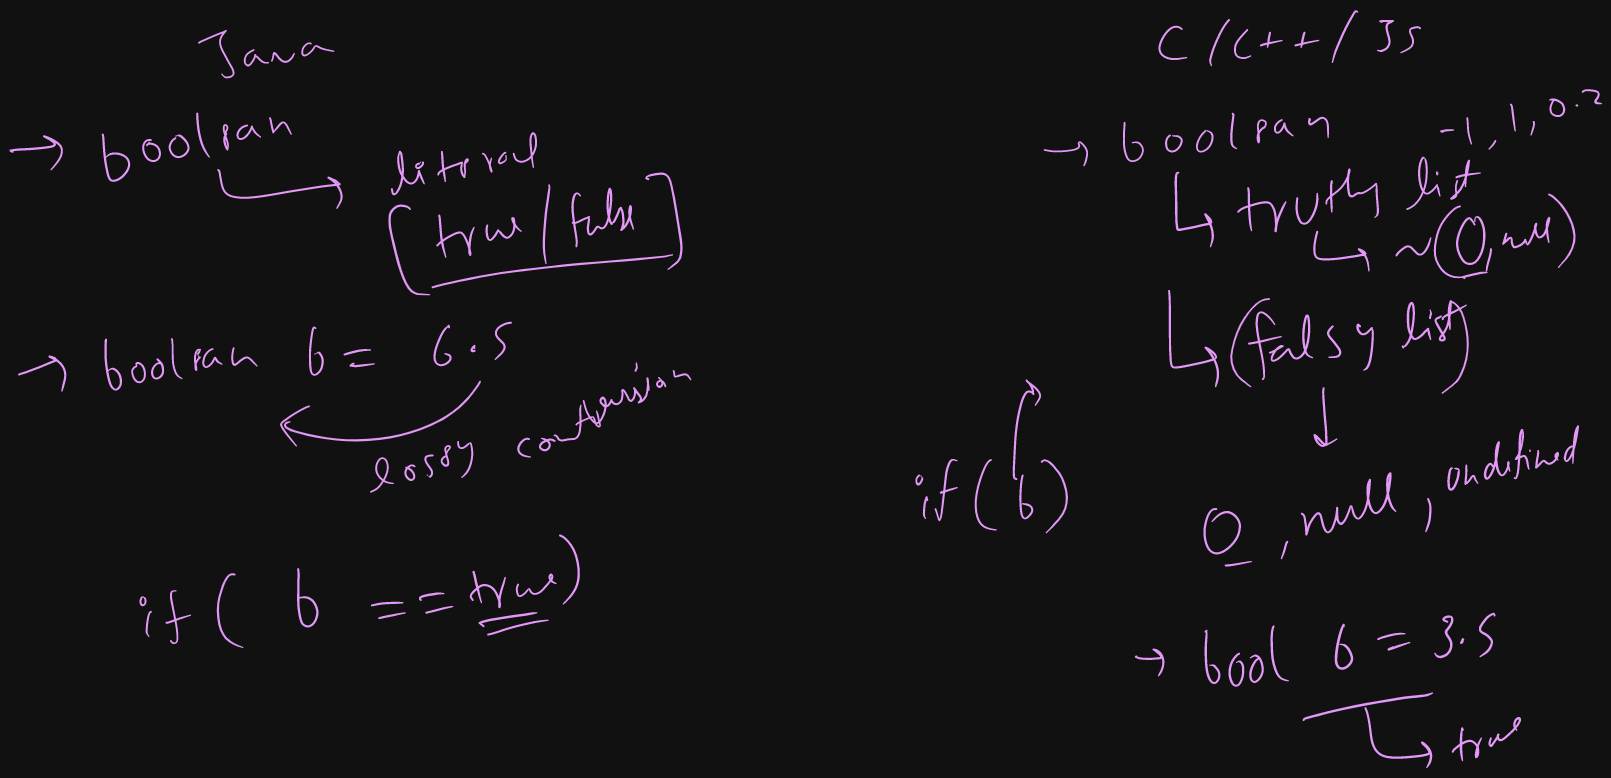 Java
→ boolean
literal
[true / false]
→ boolean b = 6.5
lossy conversion
if ( b == true )
C / C++ / JS
→ boolean
-1, 1, 0.2
truthy list
~(0, null)
(falsy list)
if ( b )
0, null, undefined
→ bool b = 3.5
true